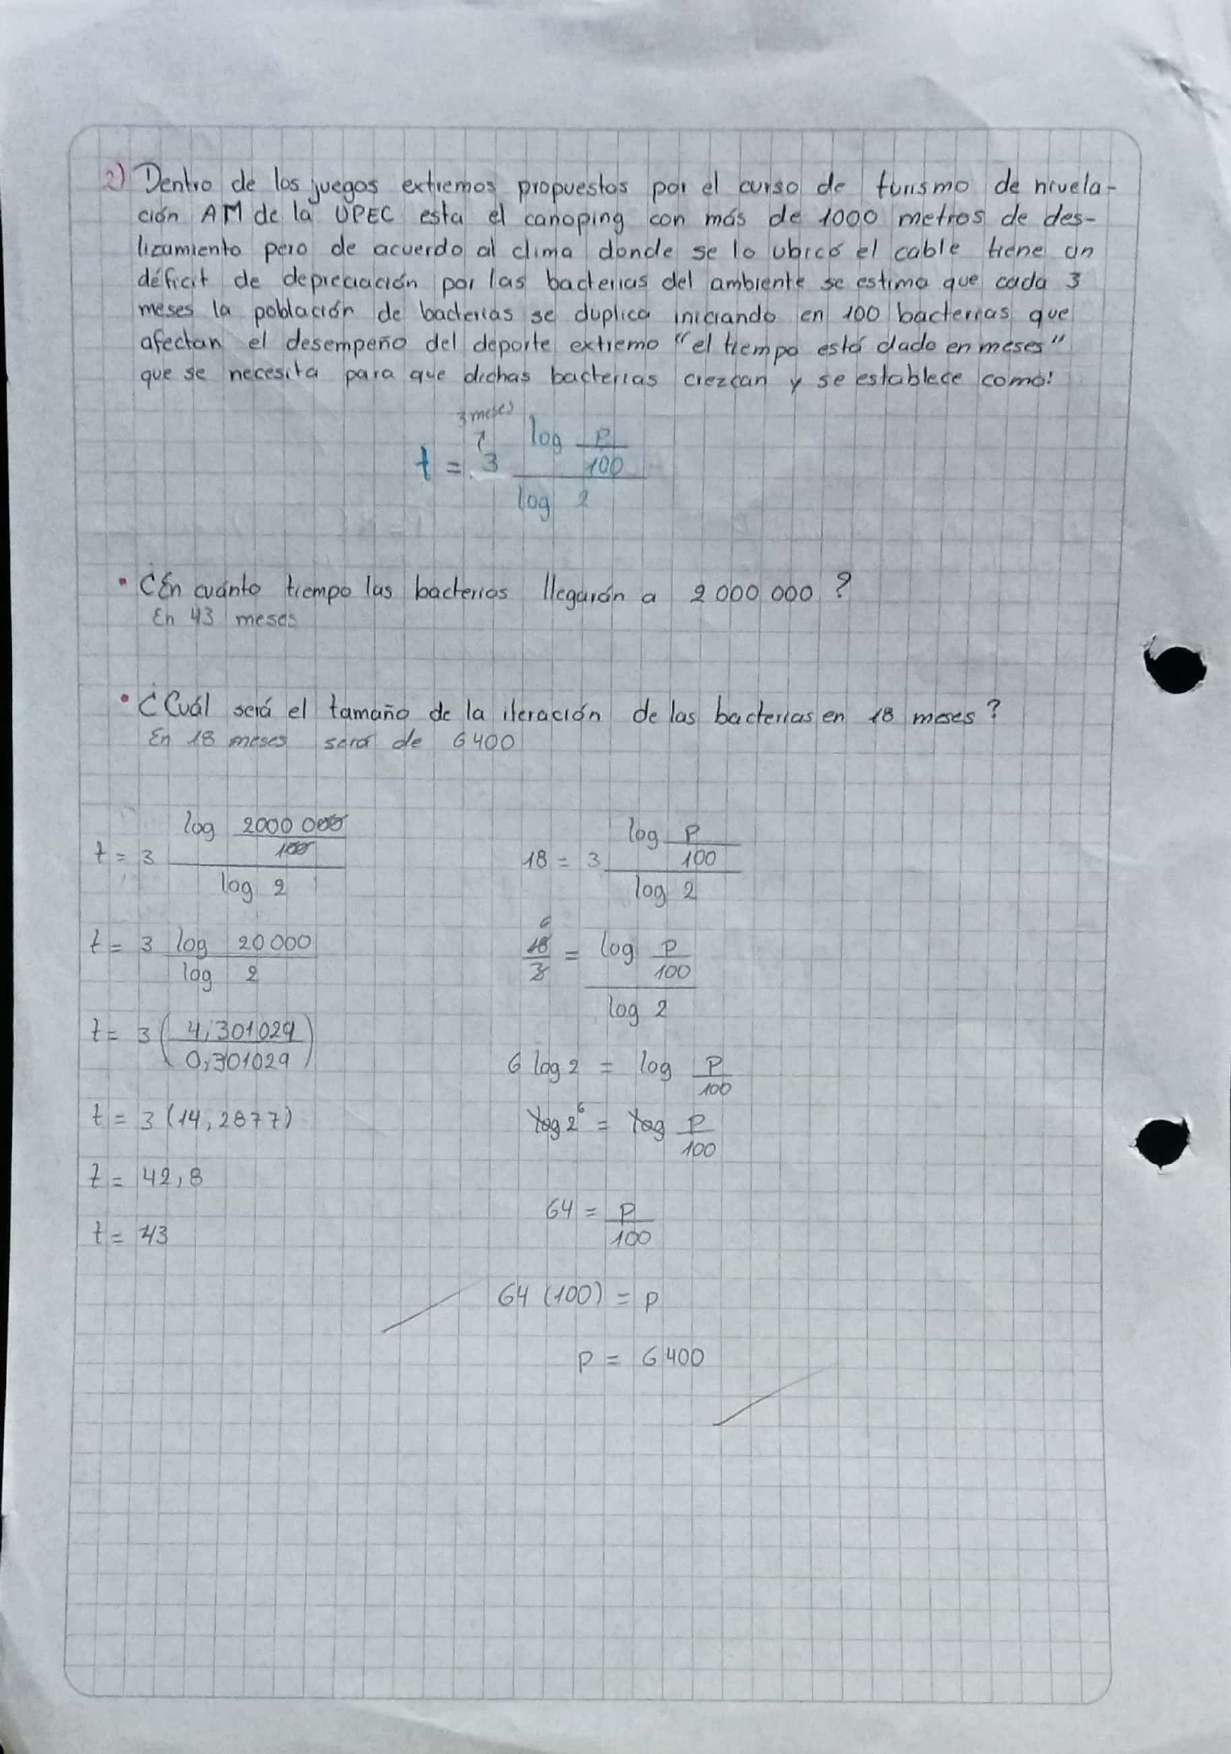 2) Dentro de los juegos extremos propuestos por el curso de turismo de nivela-
ción AM de la UPEC esta el canoping con más de 1000 metros de des-
lizamiento pero de acuerdo al clima donde se lo ubicó el cable tiene un
déficit de depreciación por las bacterias del ambiente se estima que cada 3
meses la población de bacterias se duplica iniciando en 100 bacterias que
afectan el desempeño del deporte extremo "el tiempo está dado en meses"
que se necesita para que dichas bacterias crezcan y se establece como:
3 meses
↑
t = 3 (log P/100) / (log 2)
• ¿En cuánto tiempo las bacterias llegarán a 2 000 000 ?
En 43 meses
• ¿Cuál será el tamaño de la iteración de las bacterias en 18 meses?
En 18 meses será de 6400
t = 3 (log 2000 000/100) / (log 2)
t = 3 (log 20 000) / (log 2)
t = 3 (4,301029 / 0,301029)
t = 3 (14,2877)
t = 42,8
t = 43
18 = 3 (log P/100) / (log 2)
6
18/3 = (log P/100) / (log 2)
6 log 2 = log P/100
log 2⁶ = log P/100
64 = P/100
64 (100) = P
P = 6400